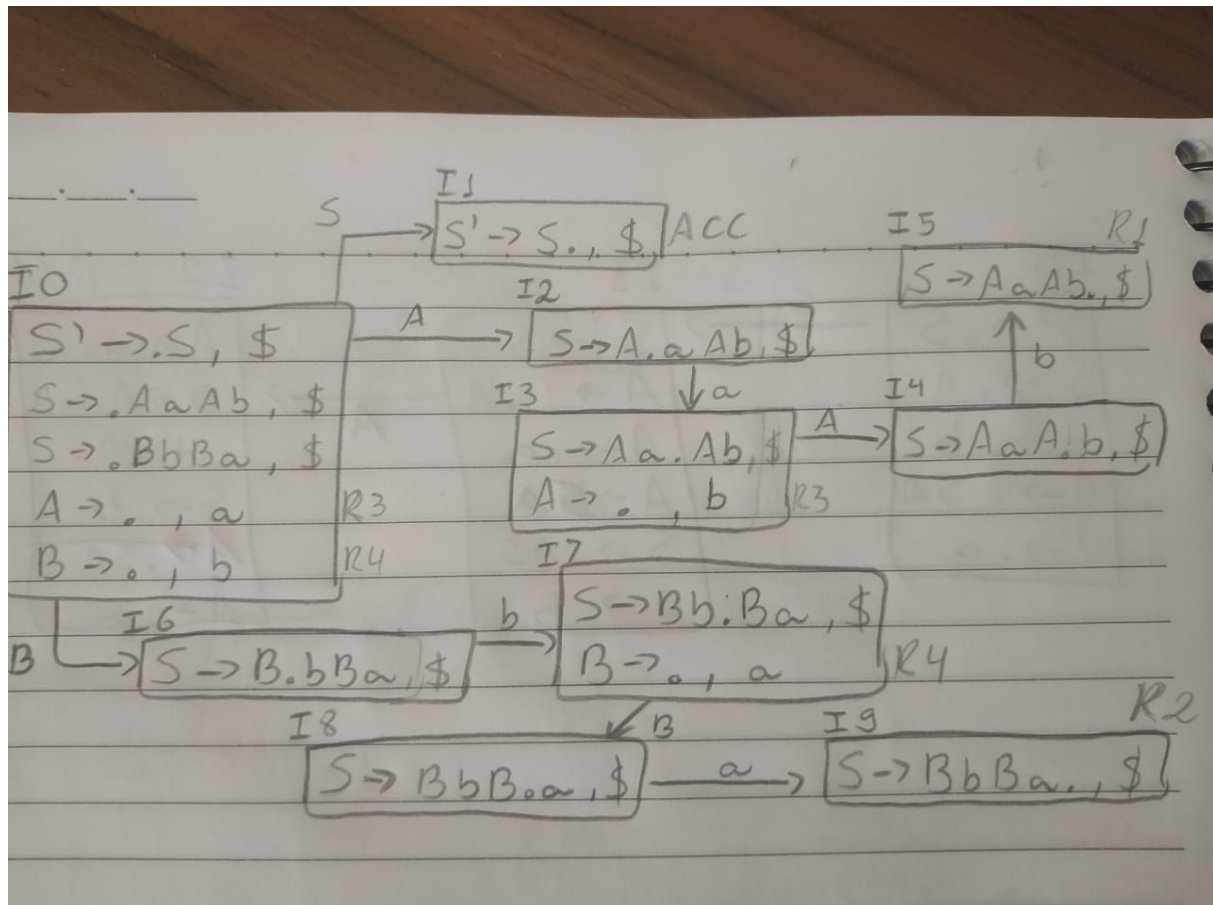 S
I1
S' -> S., $ ACC
I5 R1
S -> AaAb., $
I0
S' -> .S, $
S -> .AaAb, $
S -> .BbBa, $
A -> . , a R3
B -> . , b R4
A
I2
S -> A.aAb, $
a
I3
S -> Aa.Ab, $
A -> . , b R3
A
I4
S -> AaA.b, $
b
B
I6
S -> B.bBa, $
b
I7
S -> Bb.Ba, $
B -> . , a R4
B
I8
S -> BbB.a, $
a
I9 R2
S -> BbBa., $